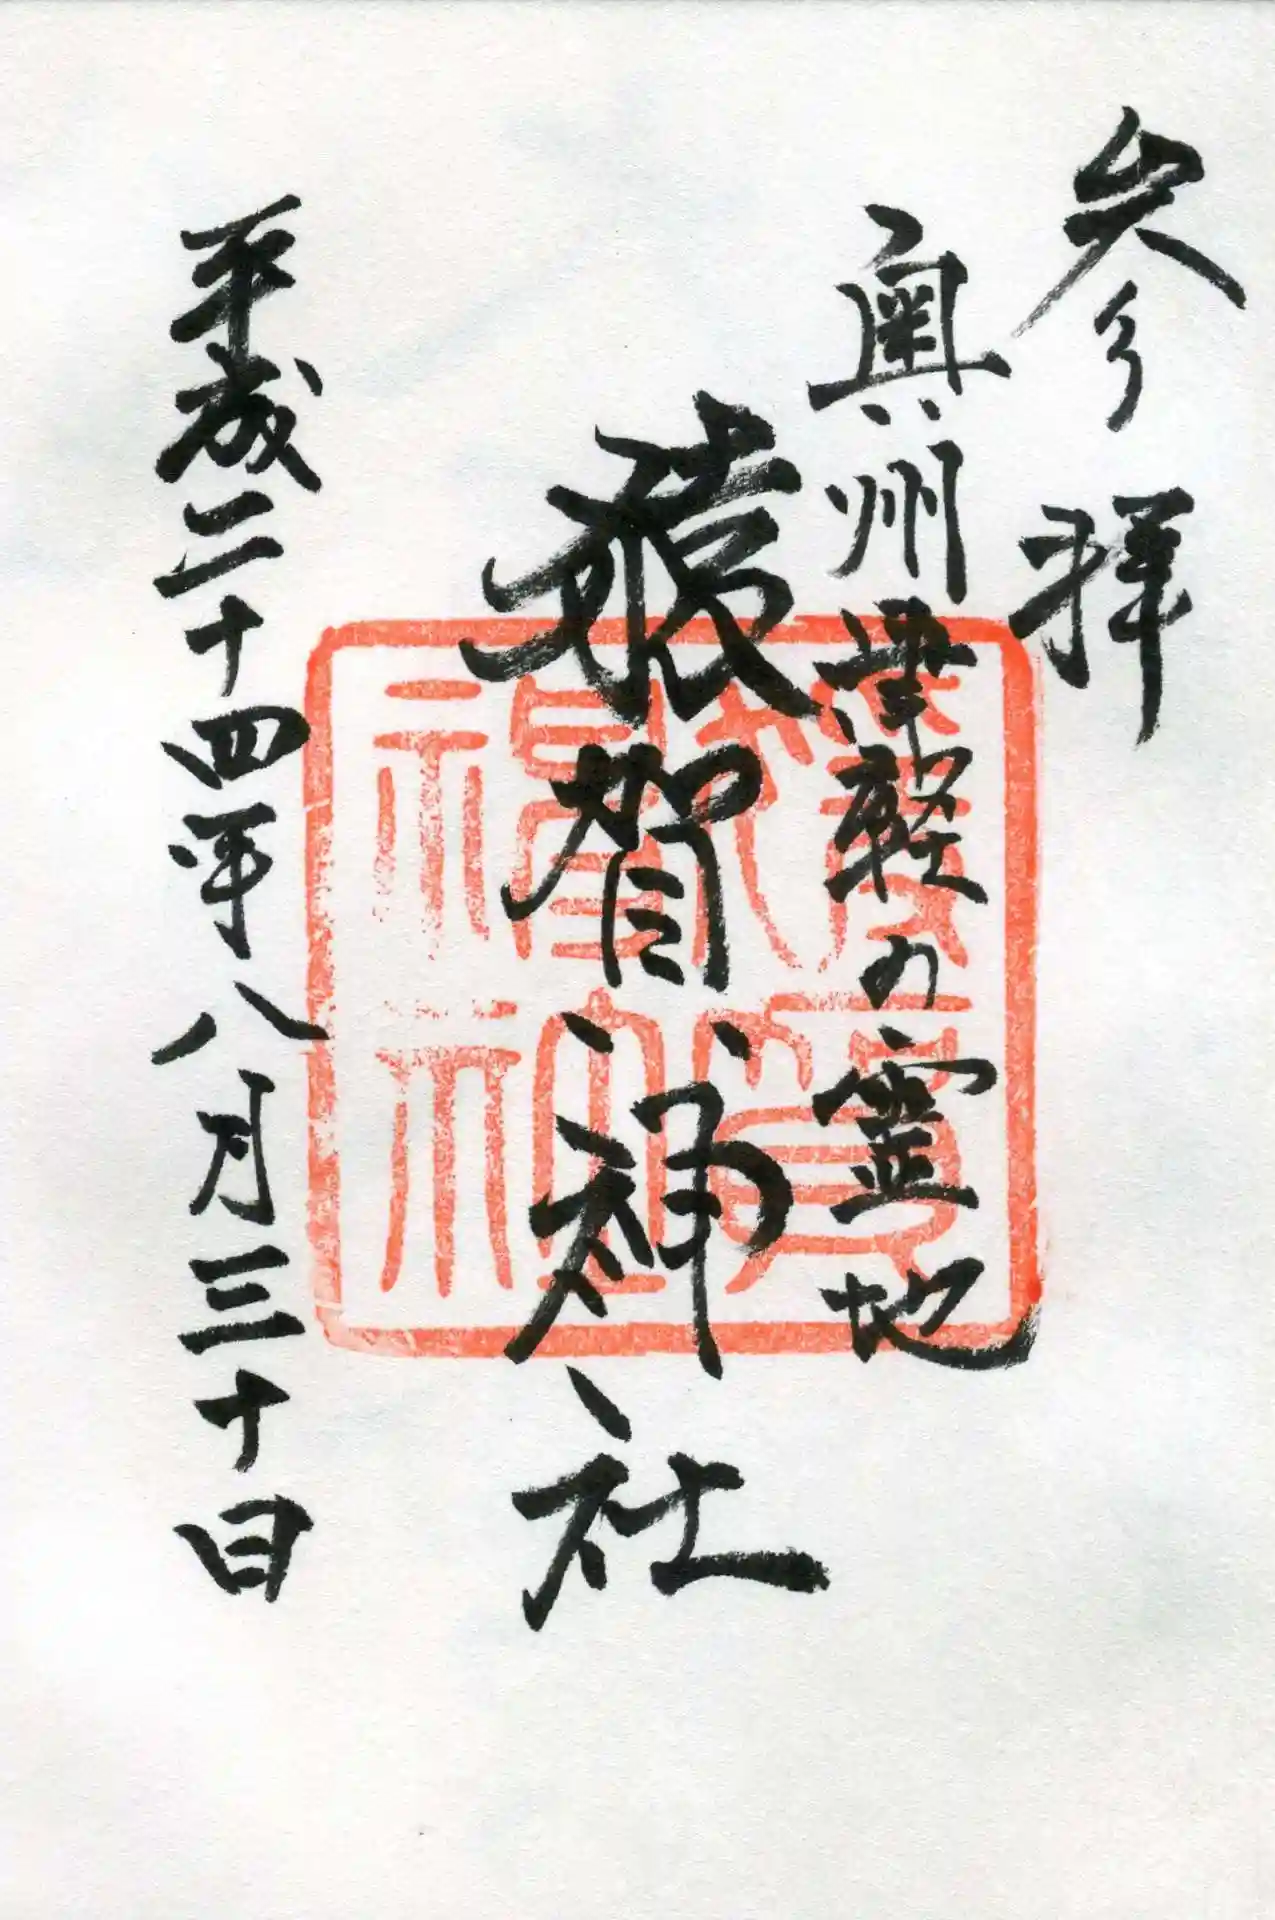 参拝
奥州津軽の霊地
猿賀神社
平成二十四年八月三十日